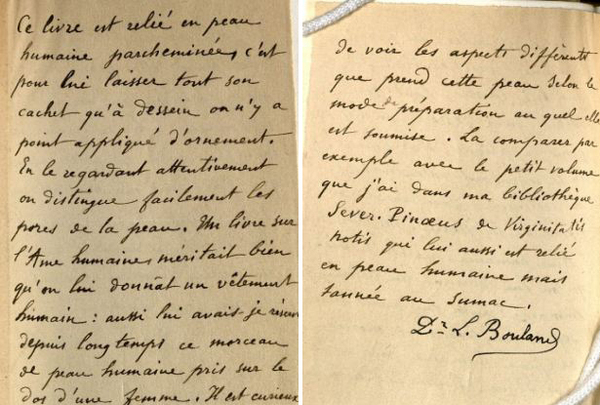 Ce livre est relié en peau
humaine parcheminée, c'est
pour lui laisser tout son
cachet qu'à dessein on n'y a
point appliqué d'ornement.
En le regardant attentivement
on distingue facilement les
pores de la peau. Un livre sur
l'Ame humaine méritait bien
qu'on lui donnât un vêtement
humain : aussi lui avais je réservé
depuis longtemps ce morceau
de peau humaine pris sur le
dos d'une femme. Il est curieux
de voir les aspects différents
que prend cette peau selon le
mode de préparation au quel elle
est soumise. La comparer par
exemple avec le petit volume
que j'ai dans ma bibliothèque
Sever. Pinaeus de Virginitatis
notis qui lui aussi est relié
en peau humaine mais
tannée au sumac.
Dr. L. Bouland